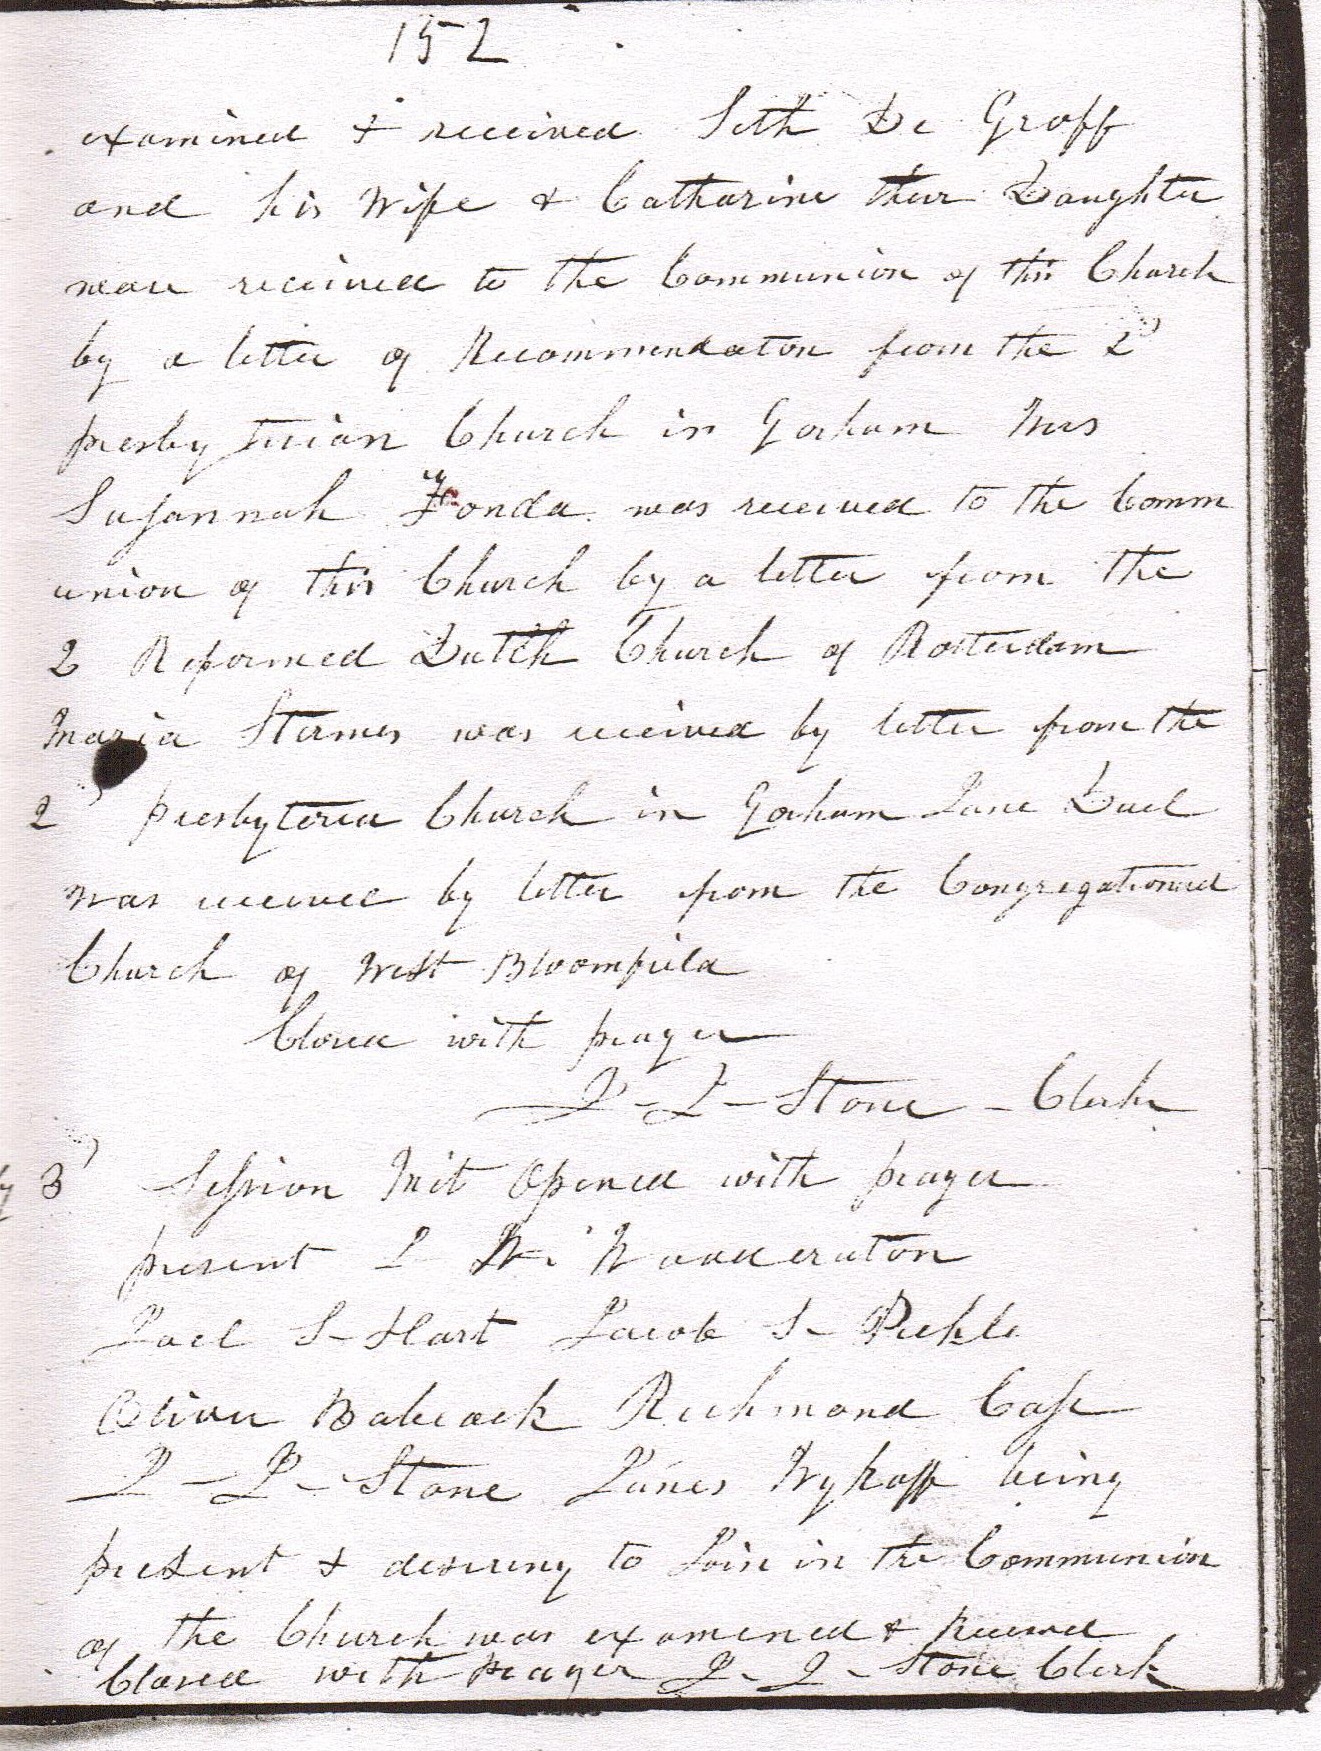 152
examined & received Seth De Groff
and his Wife & Catharine their Daughter
ware received to the Communion of this Church
by a letter of Recommendaton from the 2d
presbyterian Church in Gorham Mrs
Susannah Fonda was received to the Comm
union of this Church by a letter from the
2 Reformed Dutch Church of Rotterdam
Maria Stermes was received by letter from the
2d Presbyteria Church in Gorham Jane Duel
was received by letter from the Congregationael
Church of West Bloomfield
Closed with prayer
J - J - Stone - Clerk
3d Session Mit Opened with prayer
present J
Joel S - Hart Jacob S - Pickle
Oliver Babcock Richmond Case
J - J - Stone James Wykoff being
present & desiring to Join in the Communion
of the Church was examined & Received
Closed with prayer J - J - Stone Clerk